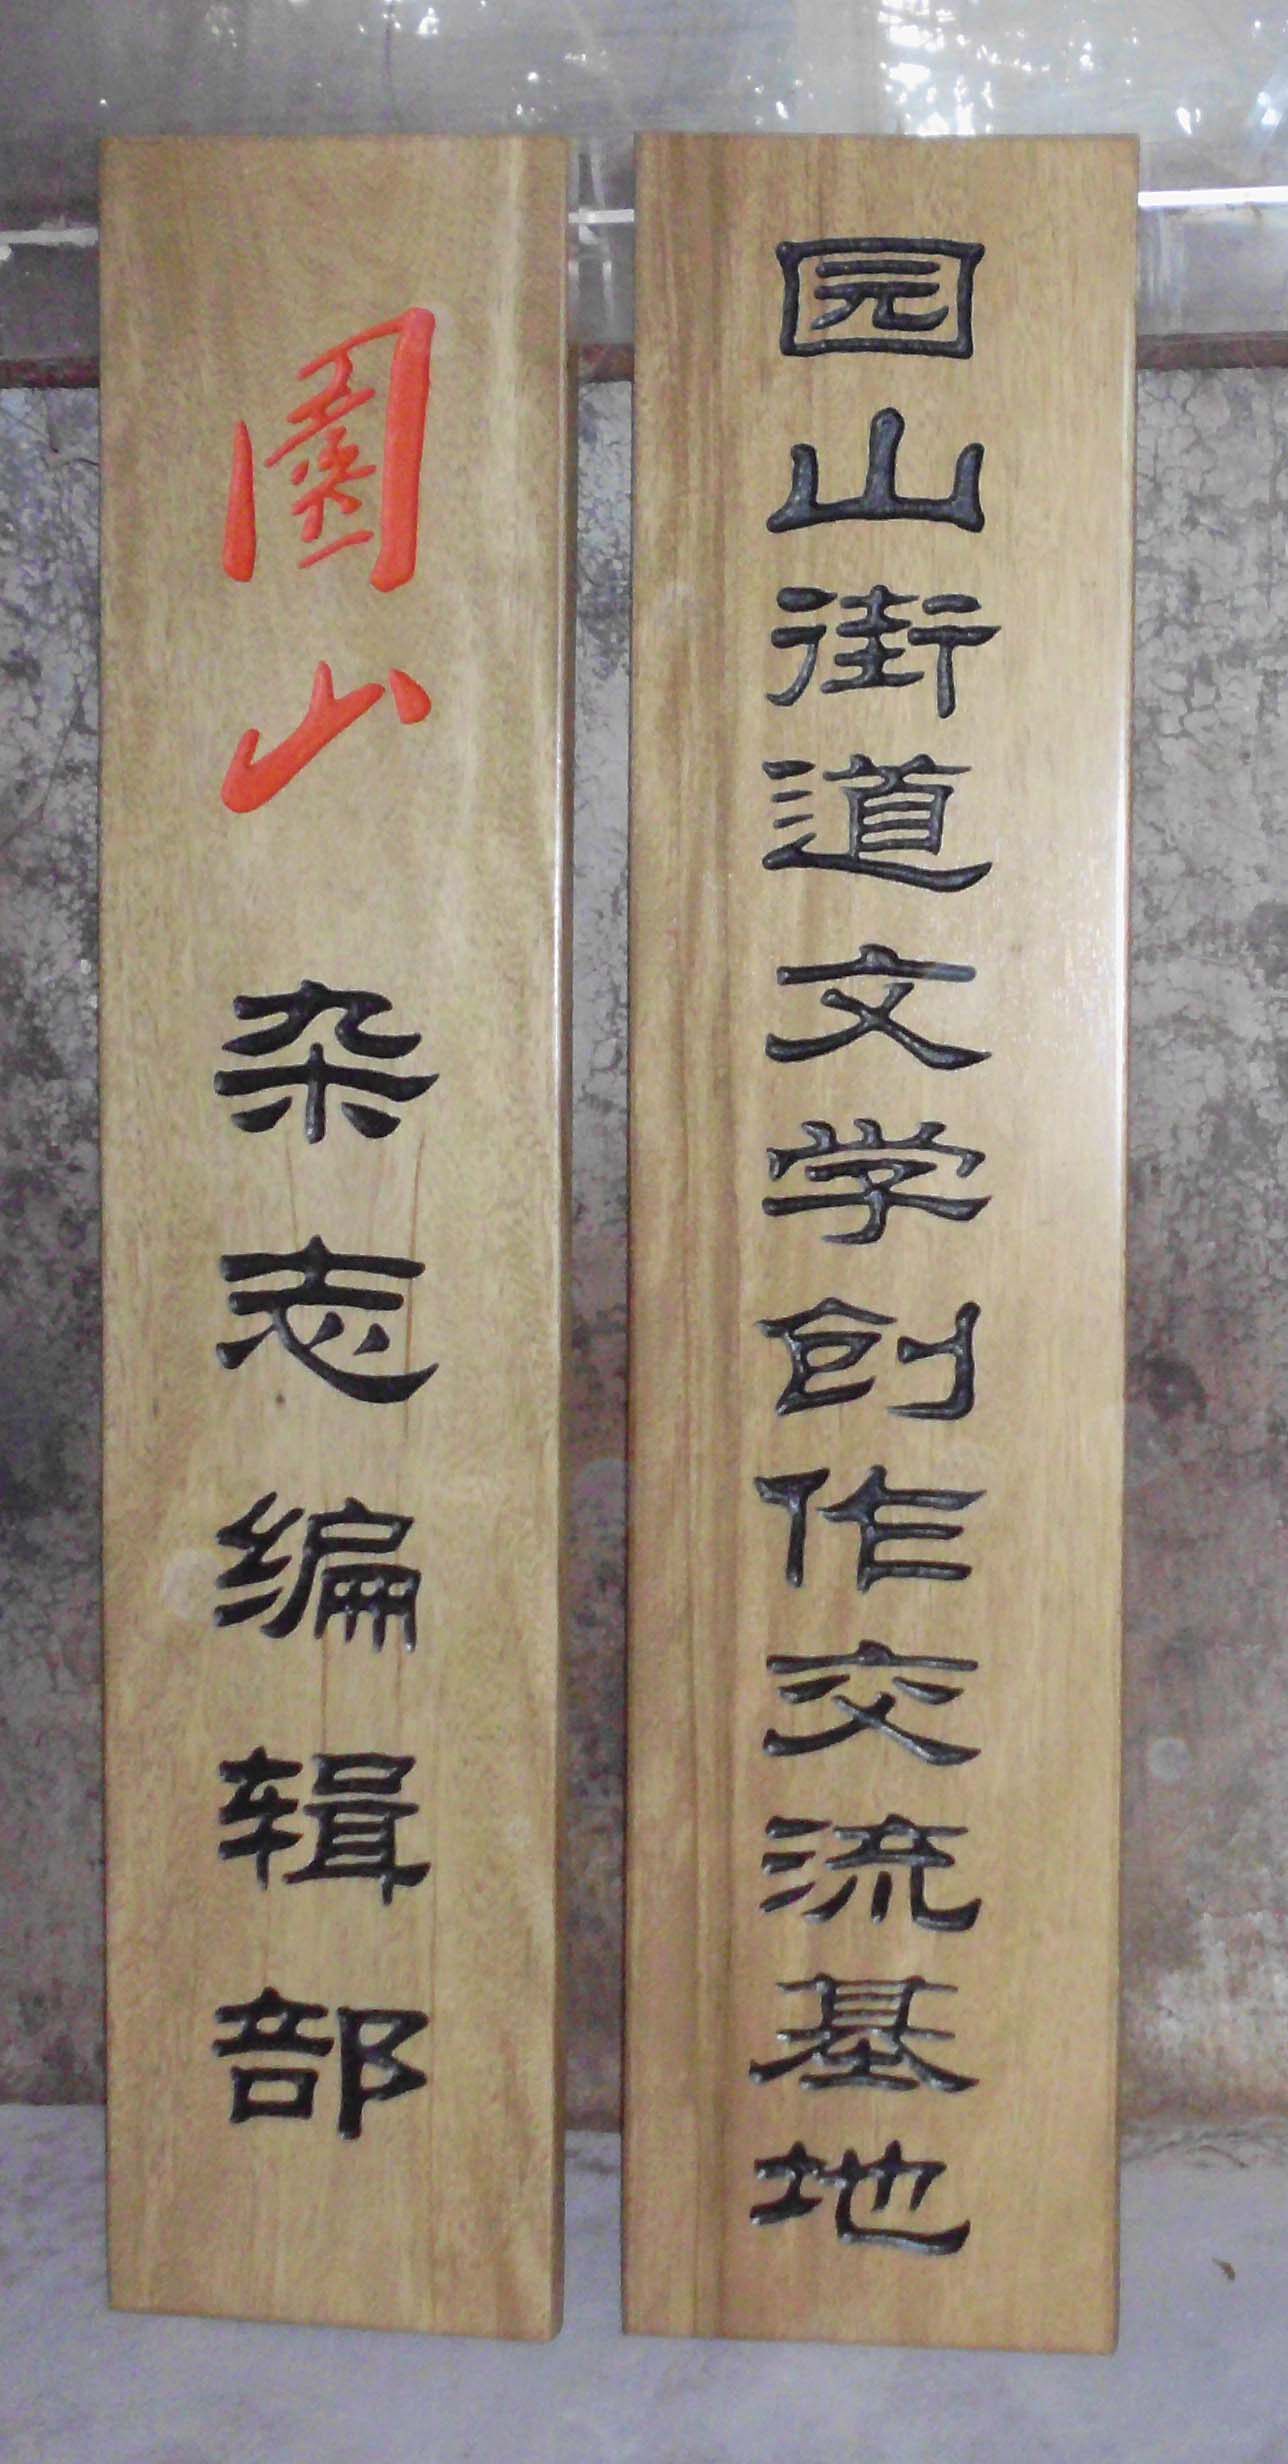 園山杂志编辑部
园山街道文学创作交流基地